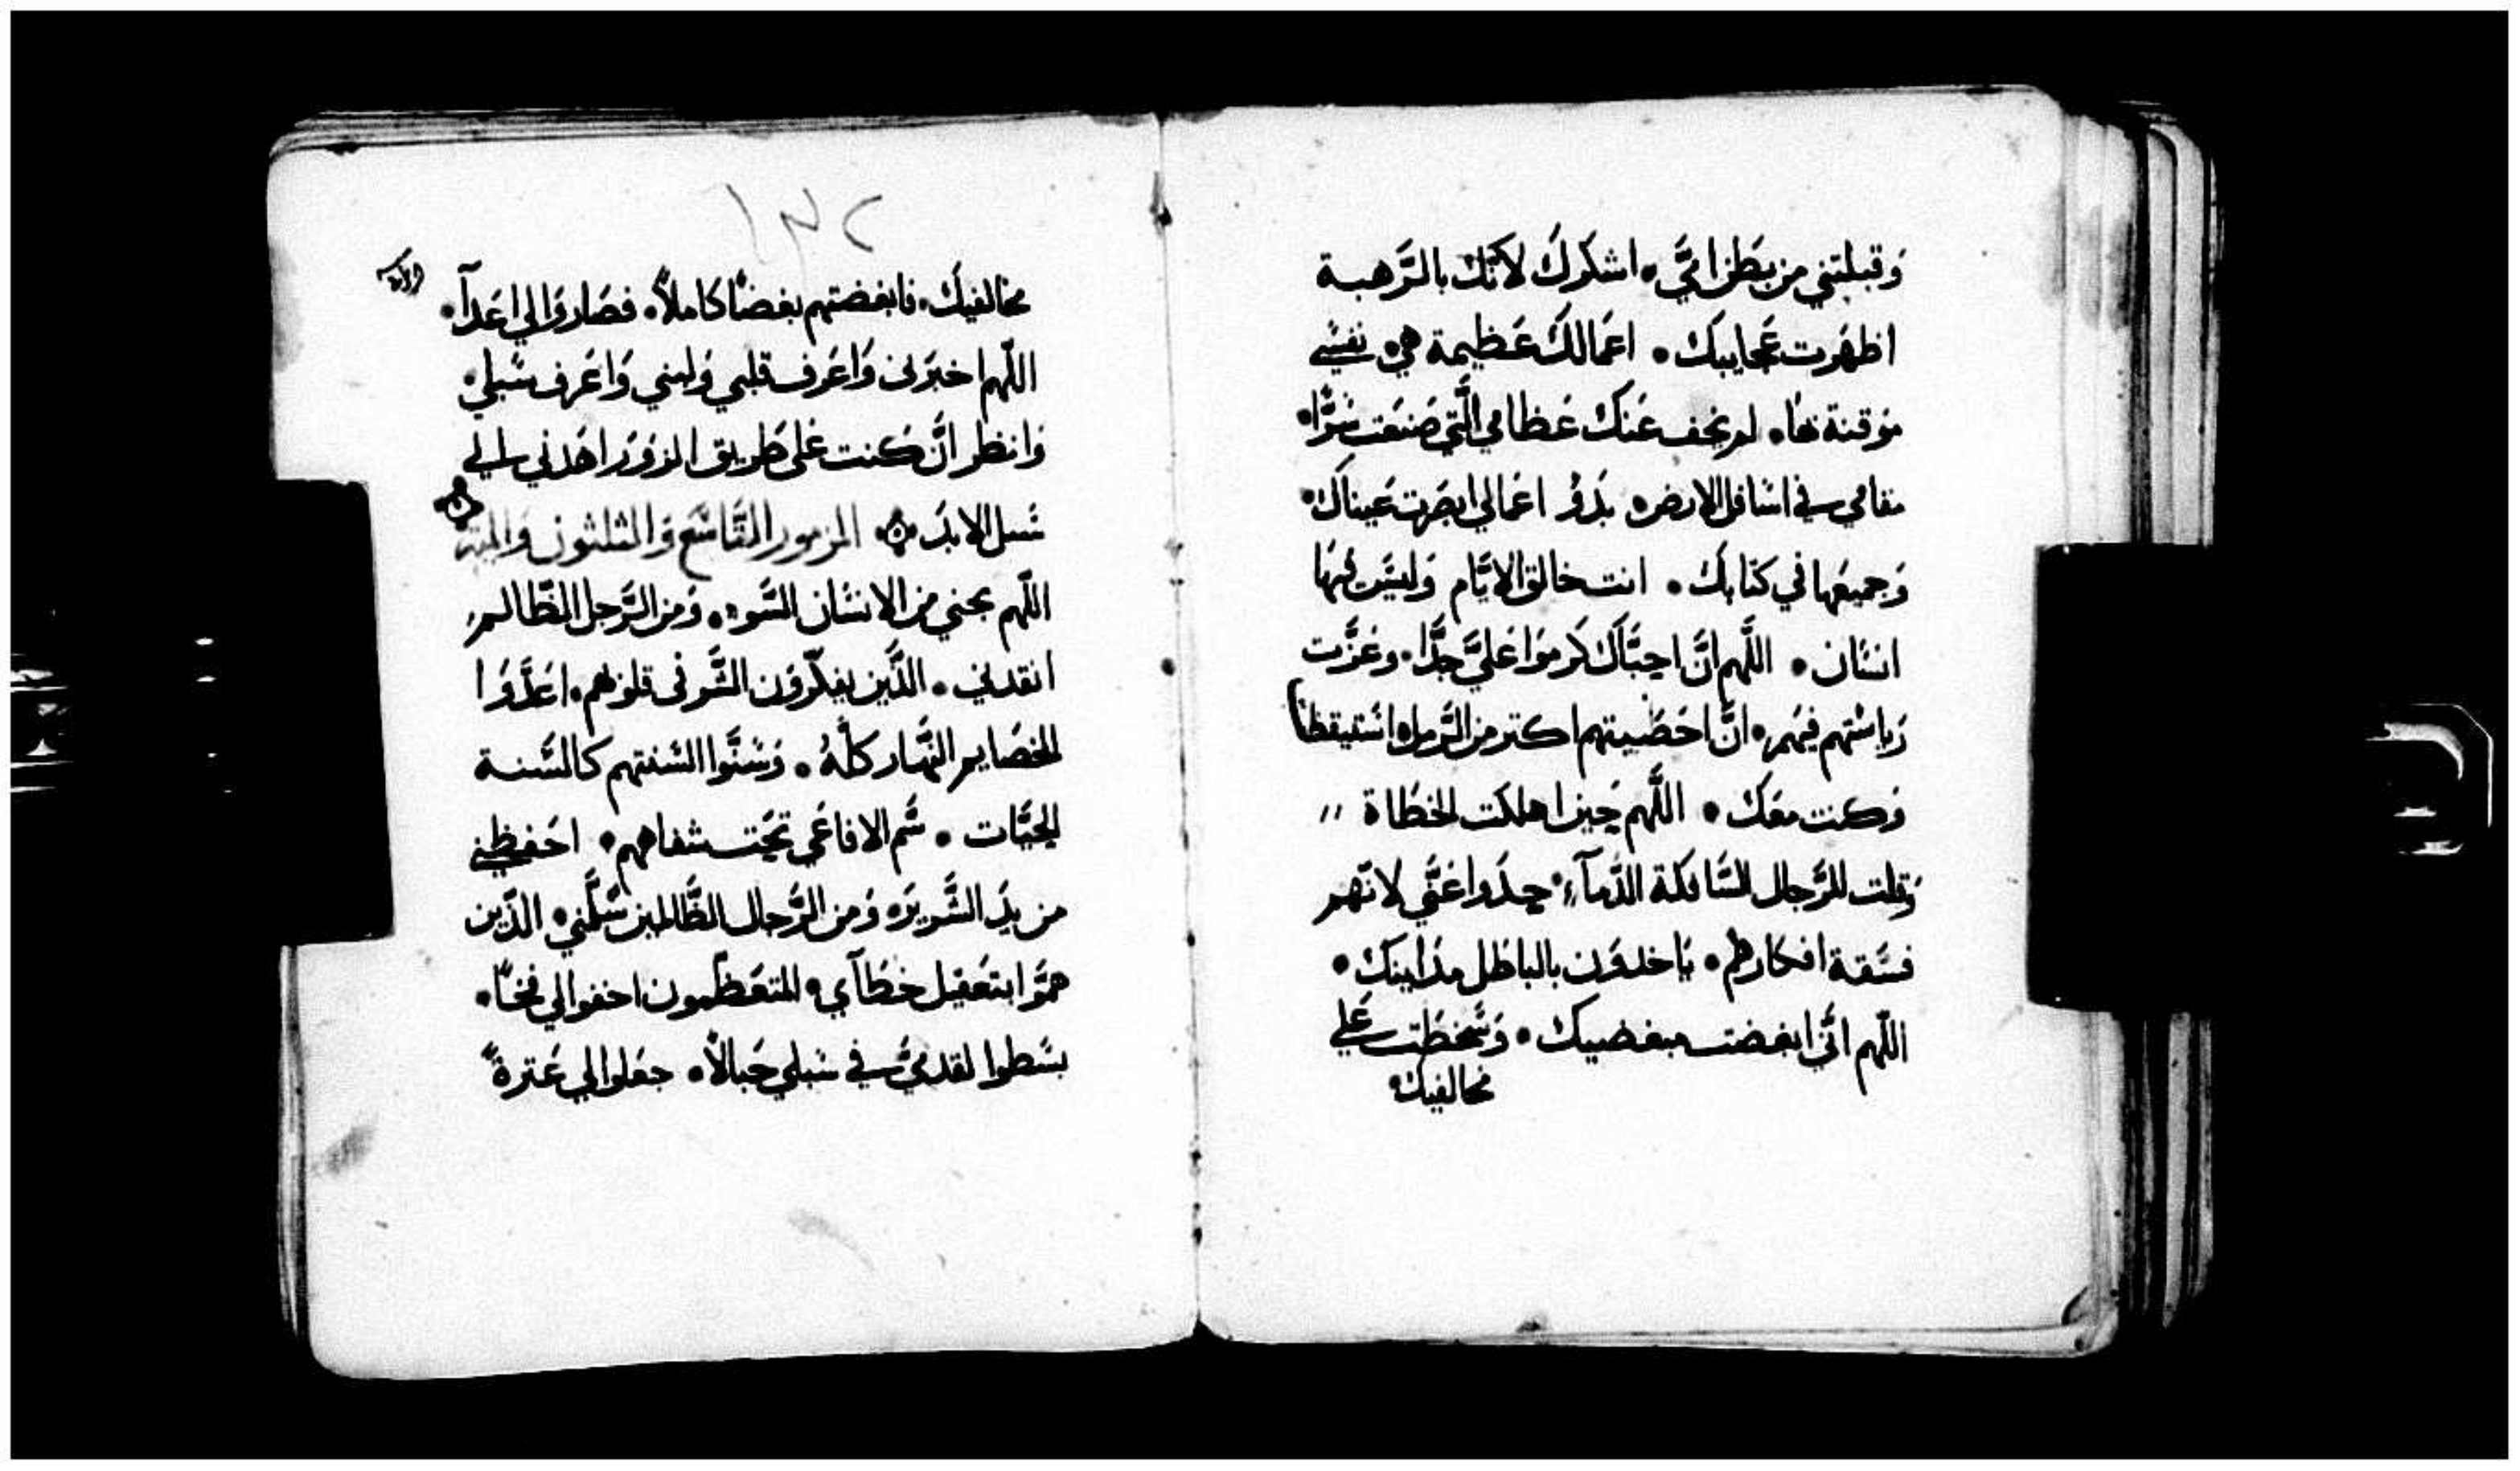 وَقبلتني من بَطن امّيَّ • اشكرك لانّك بالرَّهبة
اظهَرت عَجايبك • اعمَالكَ عَظيمة هي • نفسي
موَقنة بهَا • لم يخف عَنك عَظامي الَّتي صَنعَت سرًّا •
مقامي في اسَافل الارض • بَدوُ اعمَالي ابصَرت عَيناك •
وَجميعَها في كتابك • انت خالق الايَّام وَليسَ بهَا
انسَان • اللَّهم انَّ احبَّاك كرموَا عَليَّ جدًّا • وعَزَّت
رَياستهم فيهم • انَّ احَصَيتهم اكتر من الرَّمل • استيقظنا
وَكنت معَك • اللَّهم حِين اهلكت الخطَاة ,,
وَقلت للرَّجال السَّافكة الدَّمآء • حِدَوا عَنَّي لانّهم
فسَقة افكارهم • يَاخذوَن بالباطَل مدَاينك •
اللّهم انَّي ابغضت مبغضيك • وَسَخطَت عَلي
مخالفيك •
١٣٢
مخالفيكَ • فابغضتهم بغضًا كَاملاً • فصَاروَا لي اعَدآ •
اللّهم اخبَرنى وَاعَرف قلبي وَامتحني وَاعَرف سَبلي •
وَانظر انَّ كنت عَلي طَريق الزوَرَ اهَدني الي
سَبل الابدَ • المزمور التَّاسَع وَالثلثون وَالميه
اللّهم نجني من الانسَان السَّوء • وَمن الرَّجل الظَّالم
انقدني • الذَّين يفكّروَن الشَّر فى قلوَبهم • اعَدَّوَا
الخصَايم النَّهَار كلّهُ • وَسَنَّوا السَنتهم كالسَّنة
الحيَّات • سَّم الافاعَي تحَت شفاههم • احَفظني
من يدَ الشَّرير • وَمن الرَّجال الظَّالمين سَلّمني • الذّين
همَّوا بتعَقيل خطَآي • المتعَظّمون اخفوا لي فخًا •
بسَطوا لقدميَّ في سَبلي حَبالاً • جعَلوا لي عَترةً